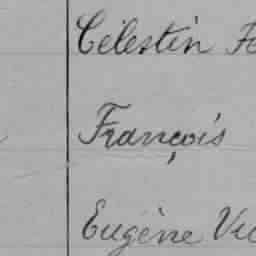 Célestin
François
Eugène